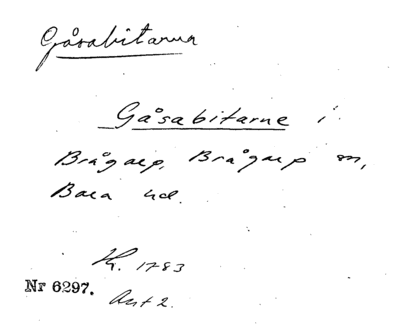 Gåsabitarna
Gåsabitarne i
Brågarp, Brågarp sn,
Bara hd.
K. 1783
Nr 6297. Akt 2.